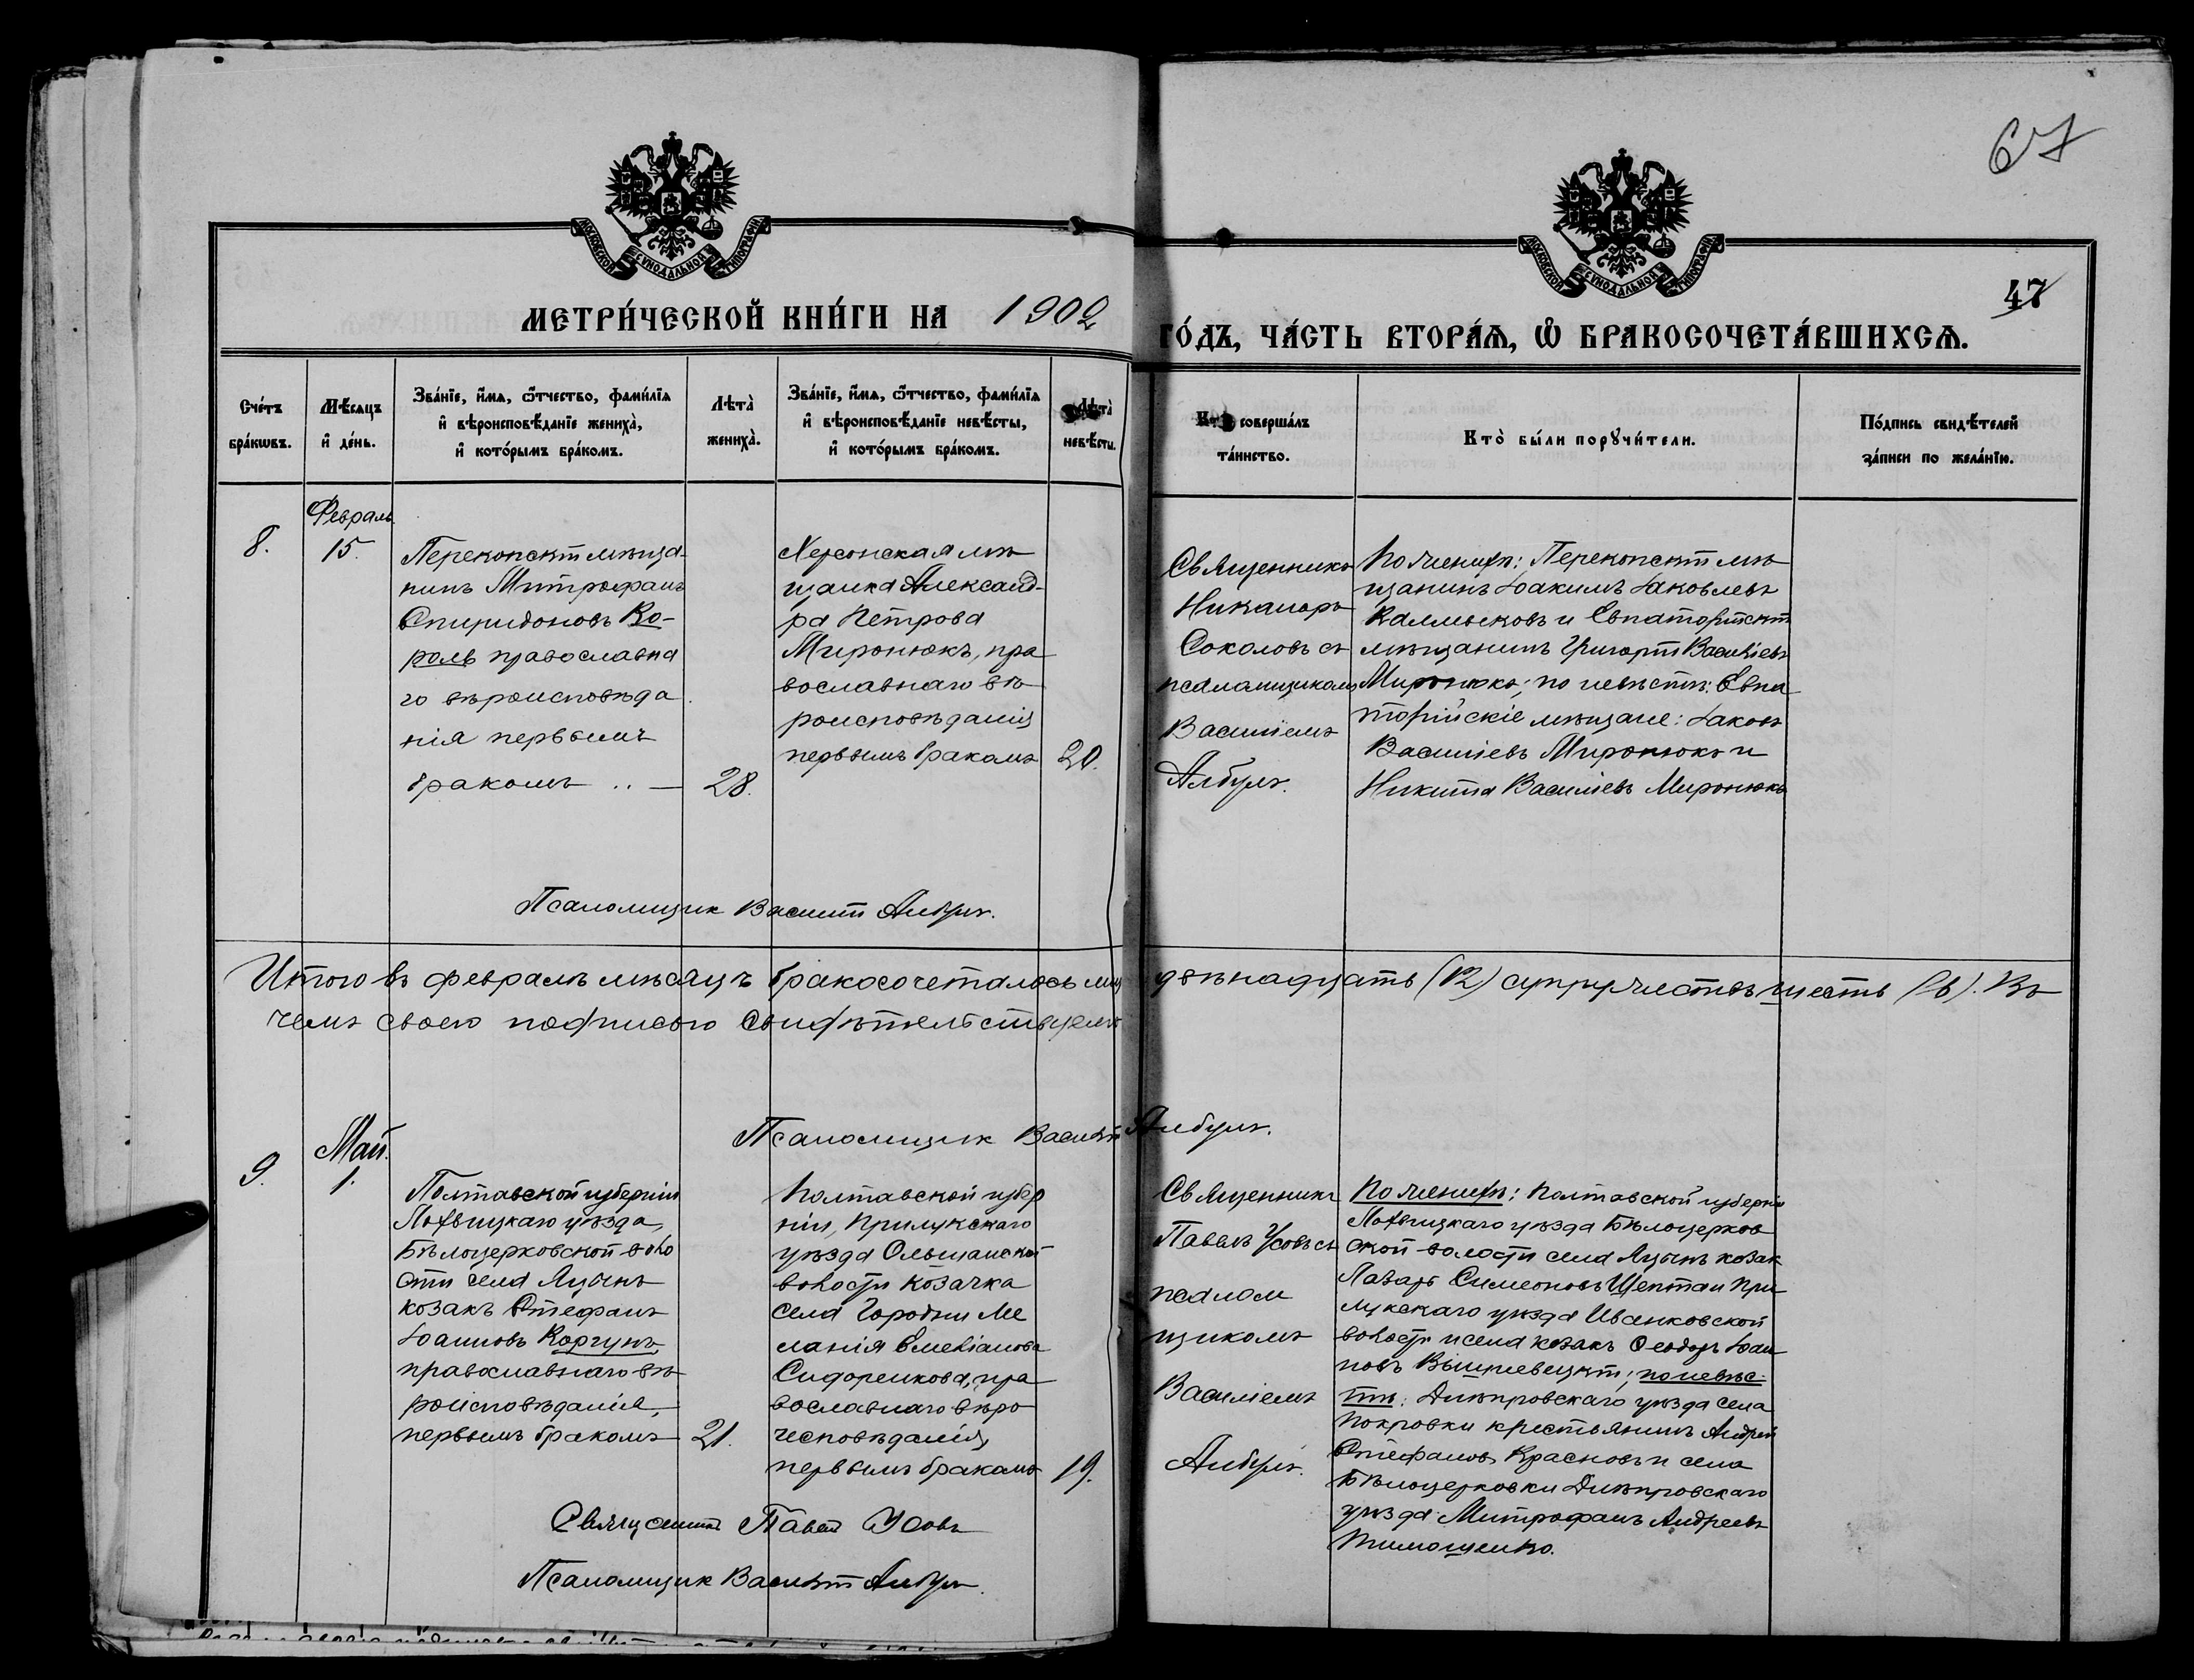 67
МОСКОВСКОЙ СѴНОДАЛЬНОЙ ТИПОГРАФІИ
МОСКОВСКОЙ СѴНОДАЛЬНОЙ ТИПОГРАФІИ
47
МЕТРИ́ЧЕСКОЙ КНИ́ГИ НА 1902 ГО́ДЪ, ЧА́СТЬ ВТОРА́Ѧ, Ѽ БРАКОСОЧЕТА́ВШИХСѦ.
Сче́тъ
бра́кѡвъ.
Мѣ́сѧцъ
и҆ де́нь.
Зва́нїе, и҆́мѧ, ѻ҆́тчество, фами́лїѧ
и҆ вѣроисповѣ́данїе жениха̀,
и҆ кото́рымъ бра́комъ.
Лѣта̀
жениха̀.
Зва́нїе, и҆́мѧ, ѻ҆́тчество, фами́лїѧ
и҆ вѣроисповѣ́данїе невѣ́сты,
и҆ кото́рымъ бра́комъ.
Лѣта̀
невѣ́сты.
Кто̀ соверша́лъ
та́инство.
Кто̀ бы́ли порꙋчи́тели.
По́дпись свидѣ́телей
за́писи по жела́нїю.
8.
Февраль
15.
Перекопскій мѣща-
нинъ Митрофанъ
Спиридоновъ Ко-
роль православна
го вѣроисповѣда
нія первымъ
бракомъ .. —
28.
Херсонская мѣ
щанка Александ-
ра Петрова
Миронюкъ, пра
вославнаго вѣ
роисповѣданія
первымъ бракомъ
20.
Священникъ
Никаноръ
Соколовъ съ
псаломщикомъ
Василіемъ
Албулъ.
По женихѣ: Перекопскій мѣ
щанинъ Іоакимъ Іаковлевъ
Калмыковъ и Евпаторійскій
мѣщанинъ Григорій Василіевъ
Миронюкъ; по невѣстѣ: Евпа
торійскіе мѣщане: Іаковъ
Василіевъ Миронюкъ и
Никита Василіевъ Миронюкъ
Псаломщик Василій Албулъ.
Итого въ февралѣ мѣсяцѣ бракосочеталось лицъ двѣнадцать (12) супружествъ шесть (6). Въ
чемъ своею подписью свидѣтельствуемъ
Псаломщик Василій Албулъ.
9.
Май.
1.
Полтавской губерніи
Лохвицкаго уѣзда,
Бѣлоцерковской воло
сти села Яцынъ
козакъ Стефанъ
Іоанновъ Коргунъ
православнаго вѣ
роисповѣданія,
первымъ бракомъ
21.
Полтавской губер
ніи, Прилукскаго
уѣзда Ольшанской
волости козачка
села Городни Ме
ланія Емеліанова
Сидоренкова, пра
вославнаго вѣро
исповѣданія,
первымъ бракомъ
19.
Священникъ
Павелъ Усовъ съ
псалом
щикомъ
Василіемъ
Албулъ.
По женихѣ: Полтавской губерніи
Лохвицкаго уѣзда Бѣлоцерков
ской волости села Яцынъ козак
Лазарь Симеоновъ Шептан При
лукскаго уѣзда Иванковской
волости и села козакъ Ѳеодоръ Іоан
новъ Вышневецкій; по невѣс-
тѣ: Днѣпровскаго уѣзда села
Покровки крестьянинъ Андрей
Стефановъ Красновъ и села
Бѣлоцерковки Днѣпровскаго
уѣзда Митрофанъ Андреевъ
Тимошенко.
Священникъ Павел Усовъ
Псаломщик Василій Албулъ.